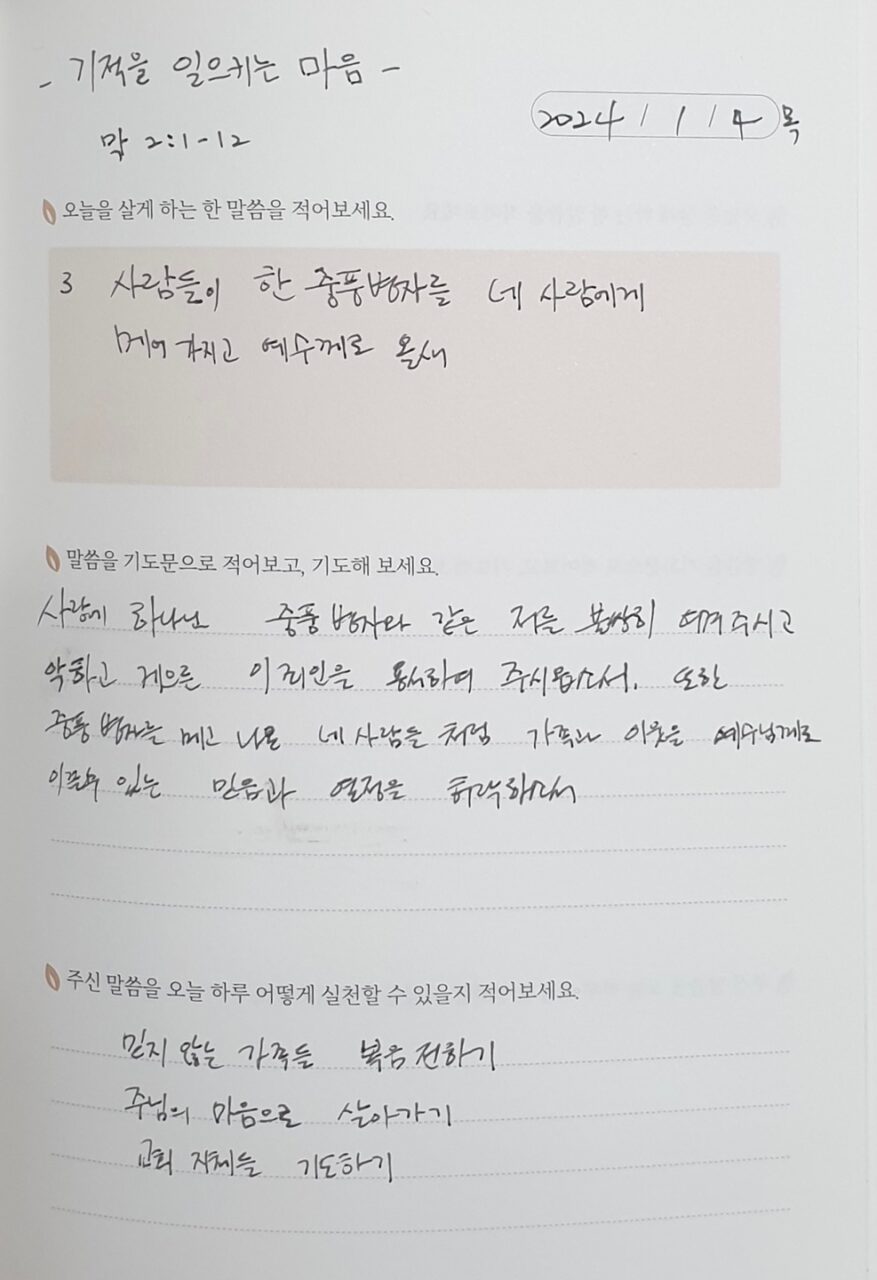 - 기적을 일으키는 마음 -
2024 / 1 / 4 목
막 2:1-12
오늘을 살게 하는 한 말씀을 적어보세요.
3 사람들이 한 중풍병자를 네 사람에게
메어 가지고 예수께로 올새
말씀을 기도문으로 적어보고, 기도해 보세요.
하나님 중풍병자와 같은 저를 불쌍히 여겨주시고
악하고 게으른 이 죄인을 용서하여 주시옵소서. 또한
중풍병자를 메고 나온 네 사람들 처럼 가족과 이웃을 예수님께로
이끌수 있는 믿음과 열정을 허락하소서
주신 말씀을 오늘 하루 어떻게 실천할 수 있을지 적어보세요.
믿지 않는 가족들 복음 전하기
주님의 마음으로 살아가기
교회 지체들 기도하기